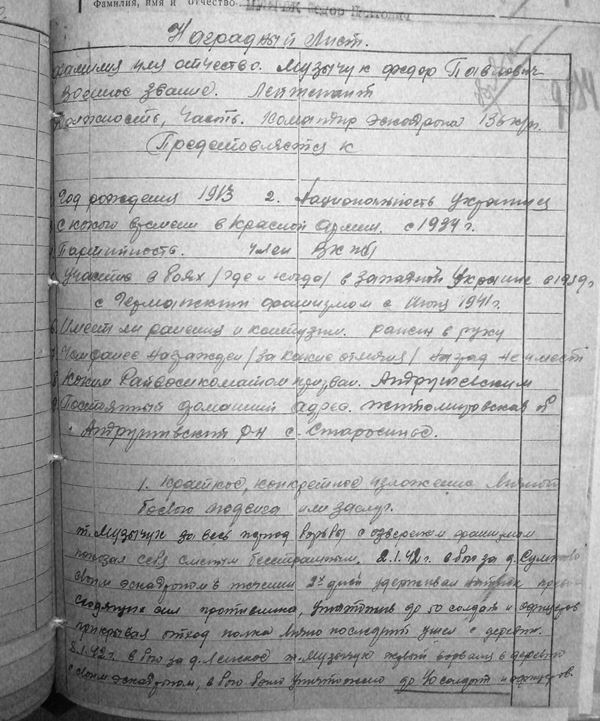 Фамилия, имя и отчество МУЗЫЧУК Федор Павлович
Наградный Лист.
Фамилия имя отчество. Музычук Федор Павлович
Военное звание. Лейтенант
Должность, Часть. Командир эскадрона 136 к/п.
Представляется к
Год рождения 1913 2. Национальность Украинец
С какого времени в Красной Армии. с 1934 г.
Партийность. член ВКП/б/
Участие в боях /где и когда/ в Западной Украине в 1939 г
с Германским фашизмом с Июня 1941 г.
6. Имеет ли ранения и контузии. ранен в руку
7. Чем ранее награжден /за какие отличия/ наград не имеет
8. Каким Райвоенкоматом призван. Андрушевским
9. Постоянный домашний адрес. Житомировская об
Андрушевский р-н с. Старосельс.
1. Краткое, конкретное изложение личного
боевого подвига или заслуг.
т. Музычук за весь период борьбы с озверелым фашизмом
показал себя смелым бесстрашным. 2.1.42 г. в бою за д.
своим эскадроном в течении 2х дней удерживал натиск
сил противника, уничтожив до 50 солдат и офицеров
прикрывая отход полка лично последний ушел с деревни.
5.1.42 г. в бою за д. Ленское т. Музычук первый ворвался в деревню
с своим эскадроном, в бою было уничтожено до 40 солдат и офицеров.